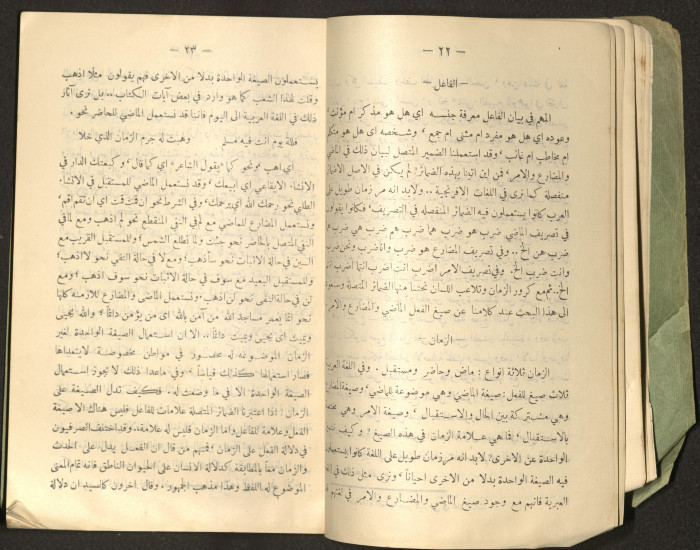 — ٢٢ —
الفاعل
المهم في بيان الفاعل معرفة جنسه اي هل هو مذكر ام مؤنث
وعوده اي هل هو مفرد ام مثنى ام جمع ، وشخصه اي هل هو متكلم
ام مخاطب ام غائب ، وقد استعملنا الضمير المتصل لبيان ذلك في الماضي
والمضارع والامر ، فمن اين اتينا بهذه الضمائر ؟ لم يكن في الاصل الا ضمائر
منفصلة كما نرى في اللغات الافرنجية .. ولابد انه مر زمان طويل على
العرب كانوا يستعملون فيه الضمائر المنفصله في التصريف ، فكانوا يقولون
في تصريف الماضي ضرب هو ضرب هما ضرب هم ضرب هي ضرب هما
ضرب هن الخ .. وفي تصريف المضارع هو ضرب وانا ضرب ونحن ضرب
وانت ضرب الخ . وفي تصريف الامر اضرب انت اضرب انتما اضرب انتم
الخ .. ثم مع كرور الزمان وتلاعب اللسان نحتنا منها الضمائر المتصلة وسنعود
الى هذا البحث عند كلامنا عن صيغ الفعل الماضي والمضارع والامر
الزمان
الزمان ثلاثة انواع : ماض وحاضر ومستقبل . وفي اللغة العربية
ثلاث صيغ للفعل : صيغة الماضي وهي موضوعة للماضي ، وصيغة المضارع
وهي مشتركة بين الحال والاستقبال ، وصيغة الامر وهي مختصة
بالاستقبال ، فما هي علامة الزمان في هذه الصيغ ؟ وكيف نميز
الواحدة عن الاخرى ؟ لابد انه مر زمان طويل على اللغة كانوا يستعملون
فيه الصيغة الواحدة بدلا من الاخرى احياناً ، ونرى مثل ذلك في اللغة
العبرية فانهم مع وجود صيغ الماضي والمضارع والامر في لغتهم
— ٢٣ —
يستعملون الصيغة الواحدة بدلا من الاخرى فهم يقولون مثلا اذهب
وقلت لهذا الشعب كما هو وارد في بعض آيات الكتاب .. بل نرى آثار
ذلك في اللغة العربية الى اليوم فاننا قد نستعمل الماضي للحاضر نحو :
فلله يوم انت فيه وهبت له جرم الزمان الذي خلا
اي اهب ، ونحو كما يقول الشاعر اي كما قال ، وكبعتك الدار في
الانشاء الايقاعي اي ابيعك ، وقد نستعمل الماضي للمستقبل في الانشاء
الطلبي نحو رحمك الله اي يرحمك ، وفي الشرط نحو ان قمت قمت اي ان تقم اقم ،
ونستعمل المضارع للماضي مع لم في النفي المنقطع نحو لم اذهب ومع لما في
النفي المتصل بالحاضر نحو جئت ولما تطلع الشمس ، وللمستقبل القريب مع
السين في حالة الاثبات نحو سأذهب ، ومع لا في حالة النفي نحو لا اذهب ،
وللمستقبل البعيد مع سوف في حالة الاثبات نحو سوف اذهب ، ومع
لن في حالة النفي نحو لن اذهب ، ونستعمل الماضي والمضارع للازمنه كلها
نحو انما يعمر مساجد الله من آمن بالله اي من يؤمن دائماً ، والله يحيي
ويميت اي يحيي ويميت دائماً .. الا ان استعمال الصيغة الواحدة لغير
الزمان الموضوعة له محصور في مواطن مخصوصة لا يتعداها
فصار استعمالها كذلك قياساً ، وفي ماعدا ذلك لا يجوز استعمال
الصيغة الواحدة الا في ما وضعت له . فكيف تدل الصيغة على
الزمان ؟ اذا اعتبرنا الضمائر المتصلة علامات للفاعل فليس هناك الا صيغة
الفعل وعلامة للفاعل واما الزمان فليس له علامة .. وقد اختلف الصرفيون
في دلالة الفعل على الزمان فمنهم من قال ان الفعل يدل على الحدث
والزمان معاً بالمطابقة كدلالة الانسان على الحيوان الناطق فانه تمام المعنى
الموضوع له اللفظ وهذا مذهب الجمهور ، وقال آخرون كالسيد ان دلالة